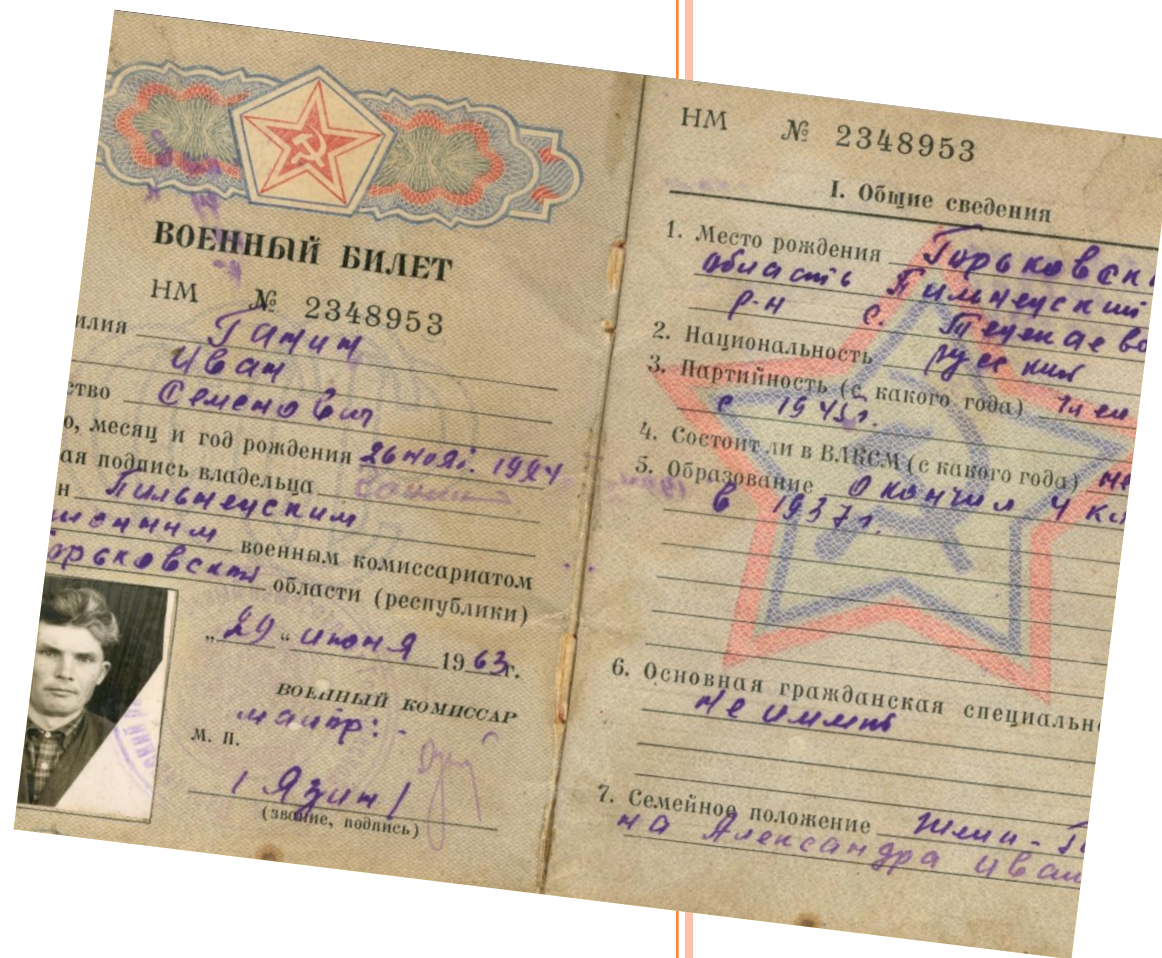 ВОЕННЫЙ БИЛЕТ
НМ № 2348953
илия Ганин
Иван
ство Семенович
о, месяц и год рождения 26 нояб. 1924
ая подпись владельца
н Пильненским
военным комиссариатом
орьковской области (республики)
„29“ июня 1963г.
ВОЕННЫЙ КОМИССАР
майор:
М. П.
/Язин/
(звание, подпись)
НМ № 2348953
I. Общие сведения
1. Место рождения Горьковск
область Пильненский
р-н с.
2. Национальность русский
3. Партийность (с какого года)
с 1945г.
4. Состоит ли в ВЛКСМ (с какого года) не
5. Образование Окончил 4 кл
в 1937г.
6. Основная гражданская специальн
Не имеет
7. Семейное положение
на Александра Иван